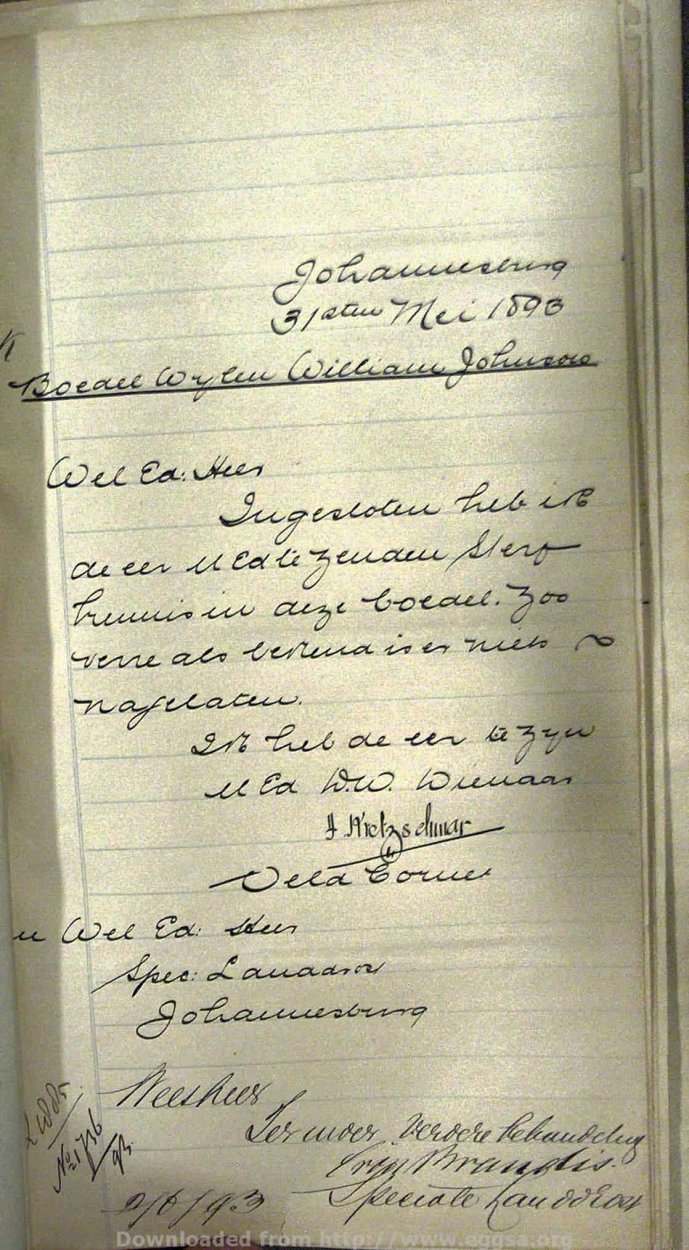 Johannesburg
31sten Mei 1893
Boedel Wylen William Johnson
Wel Ed: Heer
Ingesloten heb ik
de eer U Ed te zenden Sterf
kennis in deze boedel. Zoo
verre als bekend is er niets
nagelaten.
Ik heb de eer te zyn
U Ed D.W. Dienaar
A Kretzschmar
Veld Cornet
Wel Ed: Heer
Spec: Landdrost
Johannesburg
Weesheer
Ter uwer verdere behandeling
Brandis
Speciale Landdrost
2/6/93
LWd85
No 1736/93
Downloaded from http://www.eggsa.org